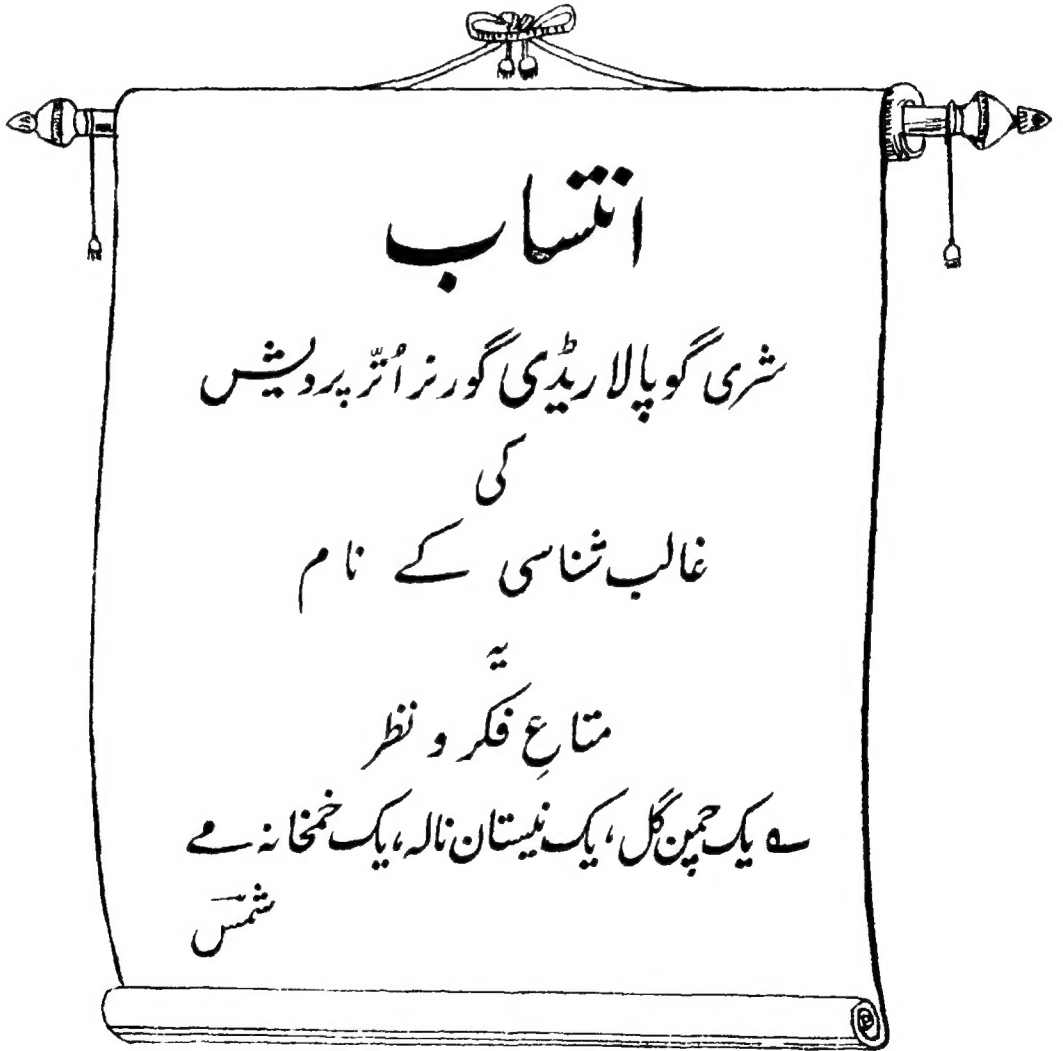 انتساب
شری گوپالا ریڈی گورنر اُتّر پردیش
کی
غالب شناسی کے نام
یہ
متاعِ فکر و نظر
؎ یک چمن گل، یک نیستان نالہ، یک خمخانہ مے
شمسؔ